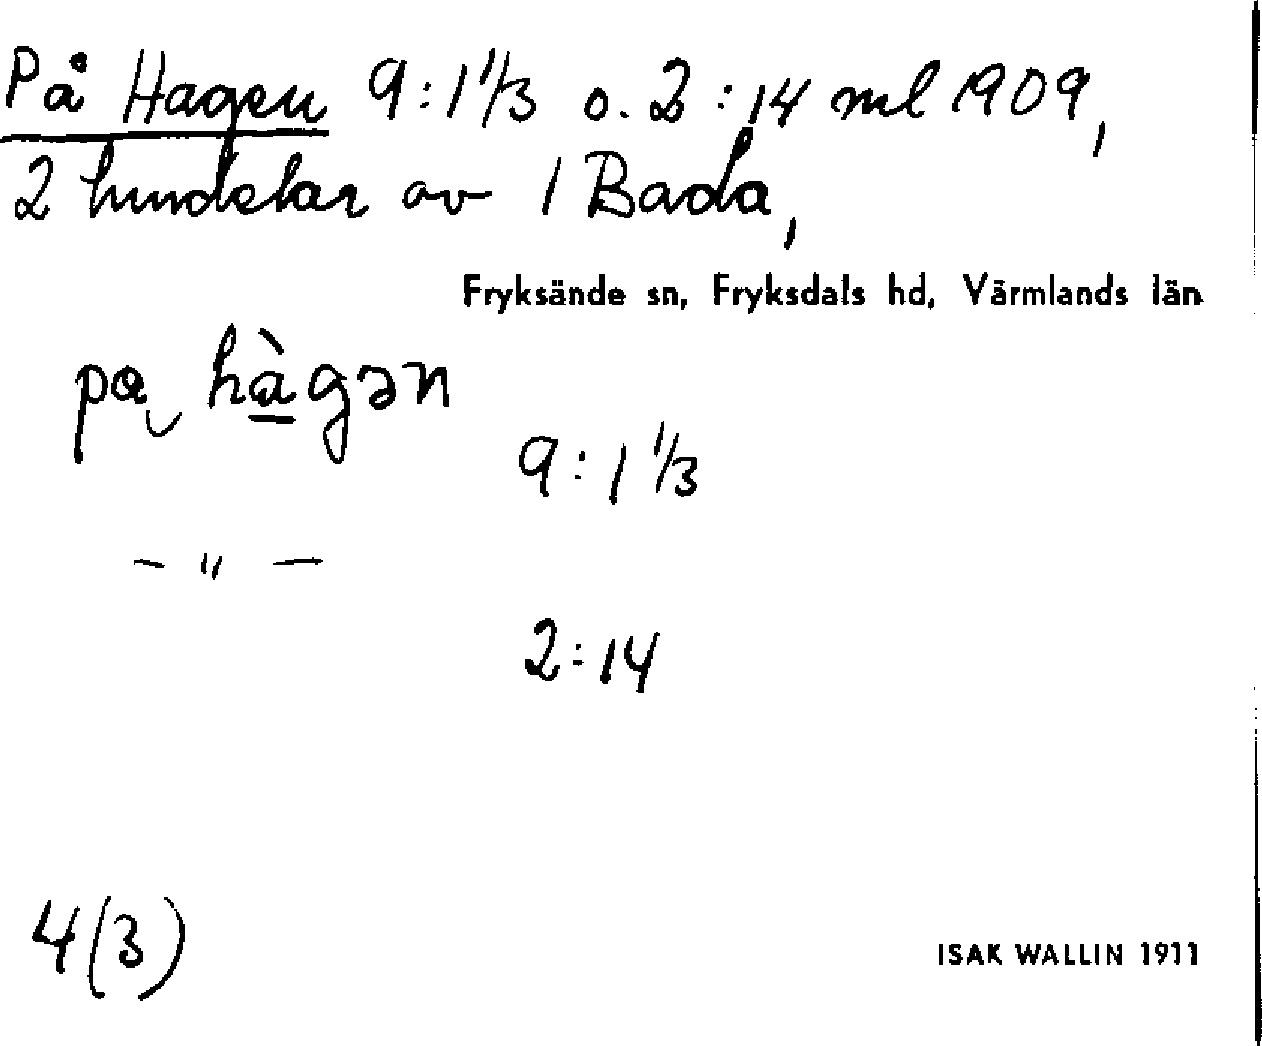 På Hagen 9:1 1/3 o. 2:14 ml 1909,
2 hundelar av 1 Bada,
Fryksände sn, Fryksdals hd, Värmlands län
pa‿ hàgən
9:1 1/3
— " —
2:14
4(3)
ISAK WALLIN 1911